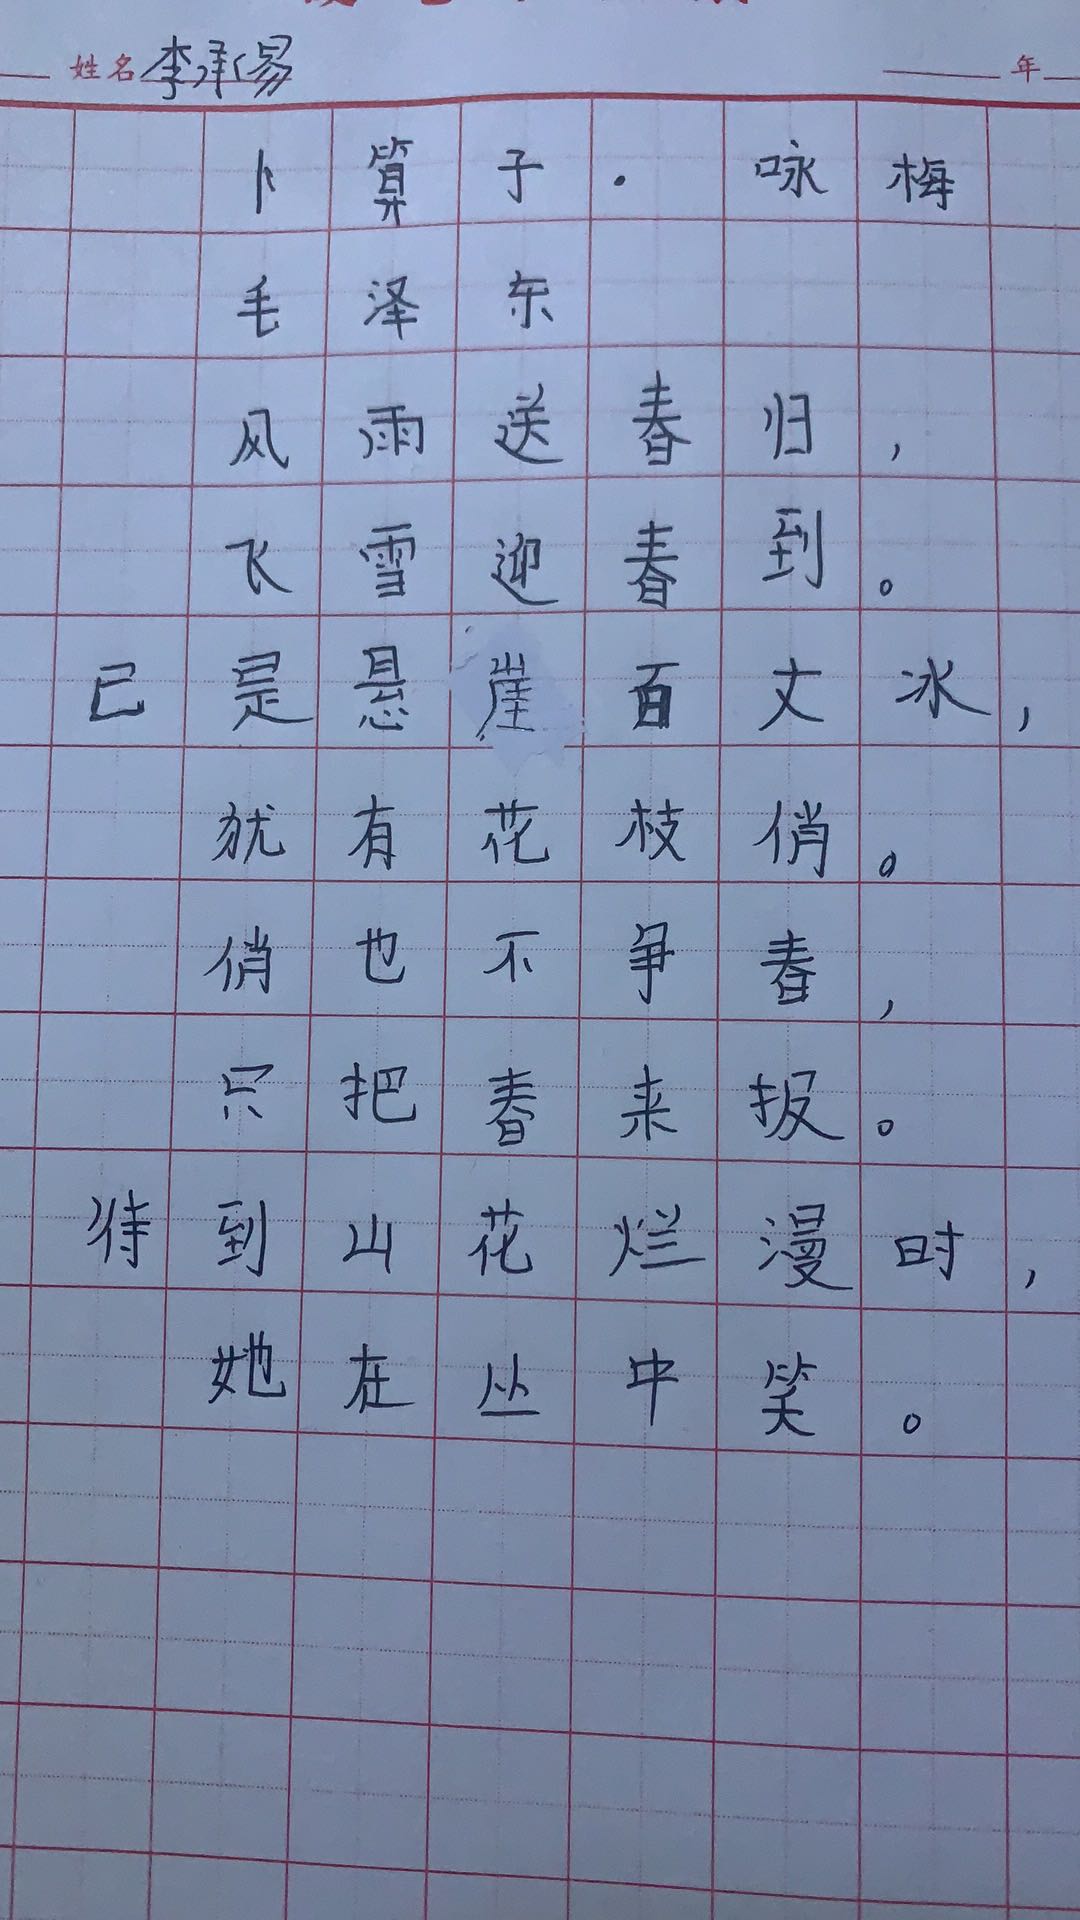 姓名 李承易 年
卜算子·咏梅
毛泽东
风雨送春归，
飞雪迎春到。
已是悬崖百丈冰，
犹有花枝俏。
俏也不争春，
只把春来报。
待到山花烂漫时，
她在丛中笑。